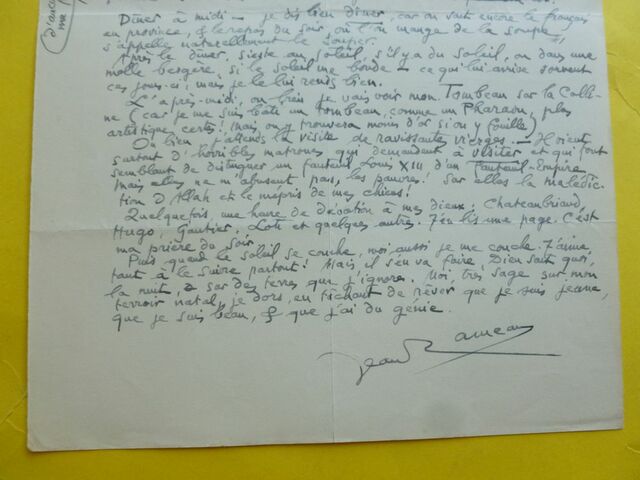 d'anc
Dîner à midi – je dis bien dîner, car on sait encore le français
en province, & le repas du soir, où l'on mange de la soupe,
s'appelle naturellement le souper.
Après le dîner, sieste au soleil, s'il y a du soleil, ou dans une
molle bergère, si le soleil me boude – ce qui lui arrive souvent
ces jours-ci, mais je le lui rends bien.
L'après-midi, ou bien je vais voir mon Tombeau sur la Colli-
ne (car je me suis bâti un tombeau, comme un Pharaon, plus
artistique, certes! mais on y trouvera moins d'or si on y fouille)
Ou bien j'attends la visite de ravissantes vierges. – Il vient
surtout d'horribles matrones qui demandent à visiter et qui font
semblant de distinguer un fauteuil Louis XIII d'un fauteuil-Empire,
mais elles ne m'abusent pas, les pauvres! Sur elles la malédic-
tion d'Allah et le mépris de mes chiens!
Quelquefois, une heure de dévotion à mes dieux: Chateaubriand,
Hugo, Gautier, Loti et quelques autres. J'en lis une page. C'est
ma prière du soir.
Puis quand le soleil se couche, moi aussi je me couche. J'aime
tant à le suivre partout! Mais il s'en va faire Dieu sait quoi,
la nuit, & sur des terres que j'ignore. Moi, très sage sur mon
terroir natal, je dors, en tâchant de rêver que je suis jeune,
que je suis beau, & que j'ai du génie.
Jean Rameau